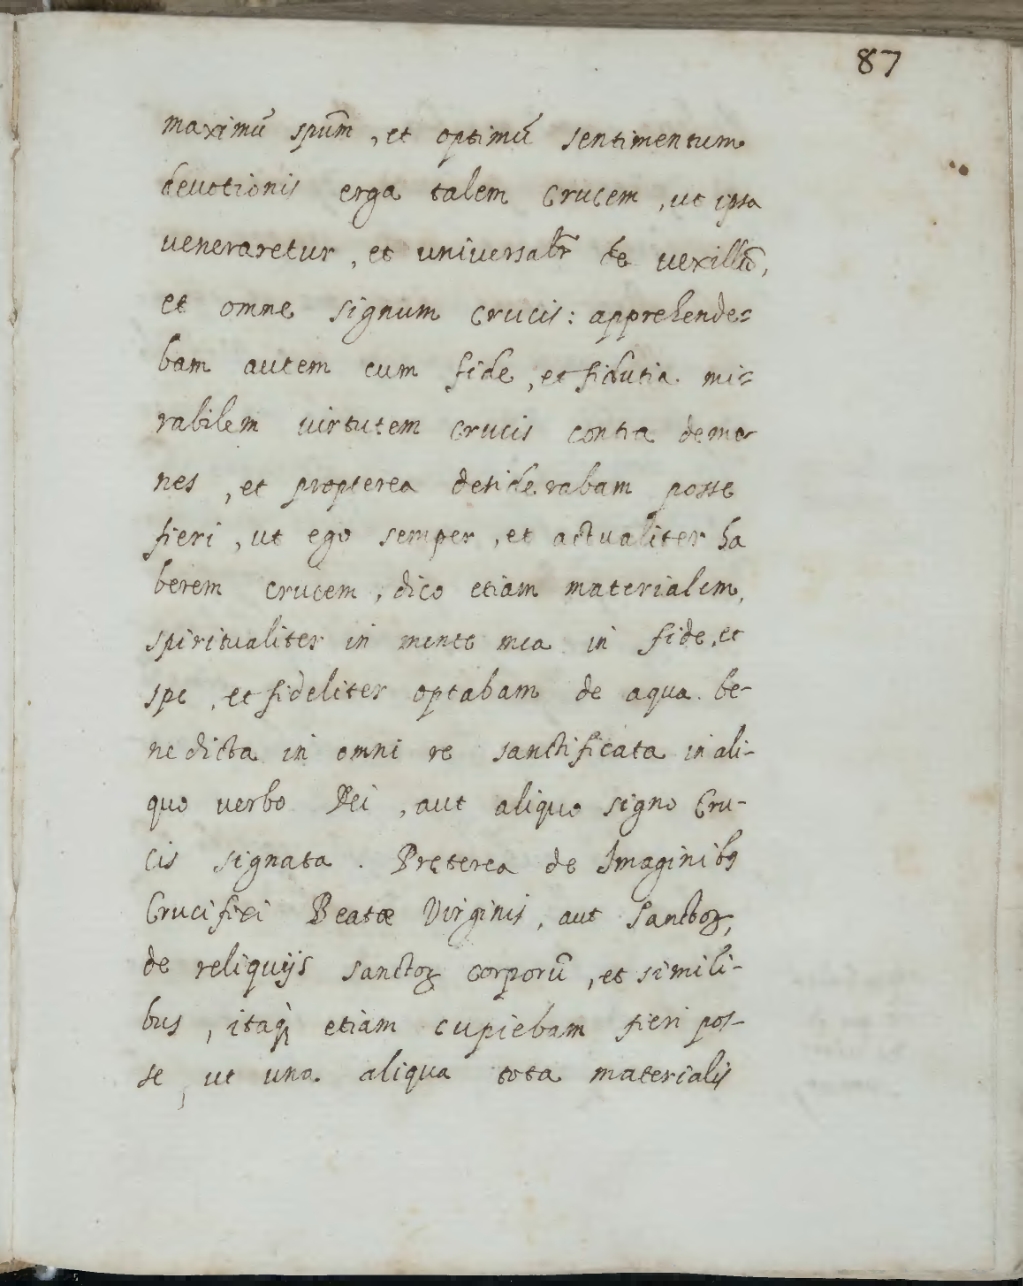 87
maximũ spũm, et optimũ sentimentum
deuotionis erga talem Crucem, ut ipsa
ueneraretur, et uniuersalr̃ de uexillo,
et omne signum crucis: apprehende=
bam autem cum fide, et fidutia mi=
rabilem uirtutem crucis contra demo
nes, et propterea desiderabam posse
fieri, ut ego semper, et actualiter ha
berem crucem, dico etiam materialem,
spiritualiter in mente mea in fide, et
spe, et fideliter optabam de aqua be-
nedicta in omni re sanctificata in ali-
quo uerbo Dei, aut aliquo signo Cru-
cis signata. Pręterea de Imaginibꝰ
Crucifixi Beatæ Virginis, aut Sanctoꝝ,
de reliquijs sanctoꝝ corporũ, et simili-
bus, itaq̀ etiam cupiebam fieri pos-
se, ut una aliqua tota materialis